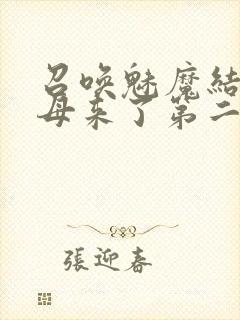 召唤魅魔結
母来了第二
張迎春